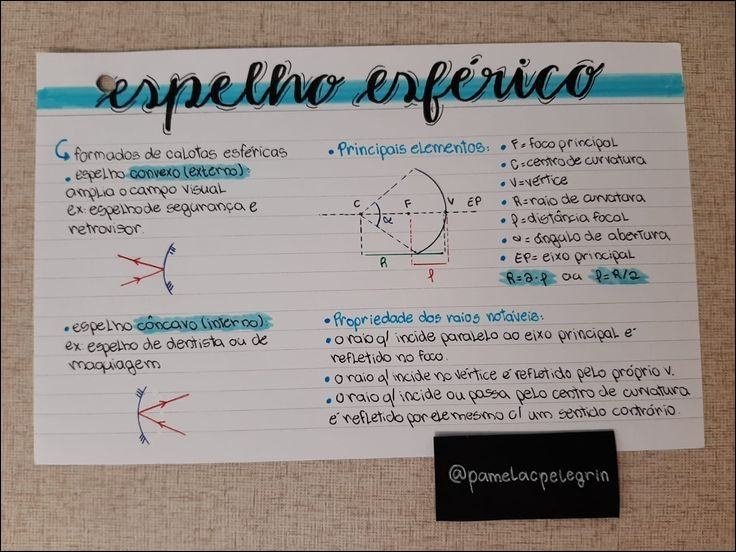 espelho esférico
formados de calotas esféricas
• espelho convexo (externo):
amplia o campo visual
ex: espelho de segurança e
retrovisor.
• espelho côncavo (interno)
ex: espelho de dentista ou de
maquiagem
• Principais elementos:
C α F V EP
R f
• F = foco principal
• C = centro de curvatura
• V = vértice
• R = raio de curvatura
• f = distância focal
• α = ângulo de abertura
• EP = eixo principal
R = 2 · f ou f = R/2
• Propriedade dos raios notáveis:
• o raio q/ incide paralelo ao eixo principal é
refletido no foco.
• o raio q/ incide no vértice é refletido pelo próprio V.
• o raio q/ incide ou passa pelo centro de curvatura
é refletido por ele mesmo c/ um sentido contrário.
@pamelacpelegrin